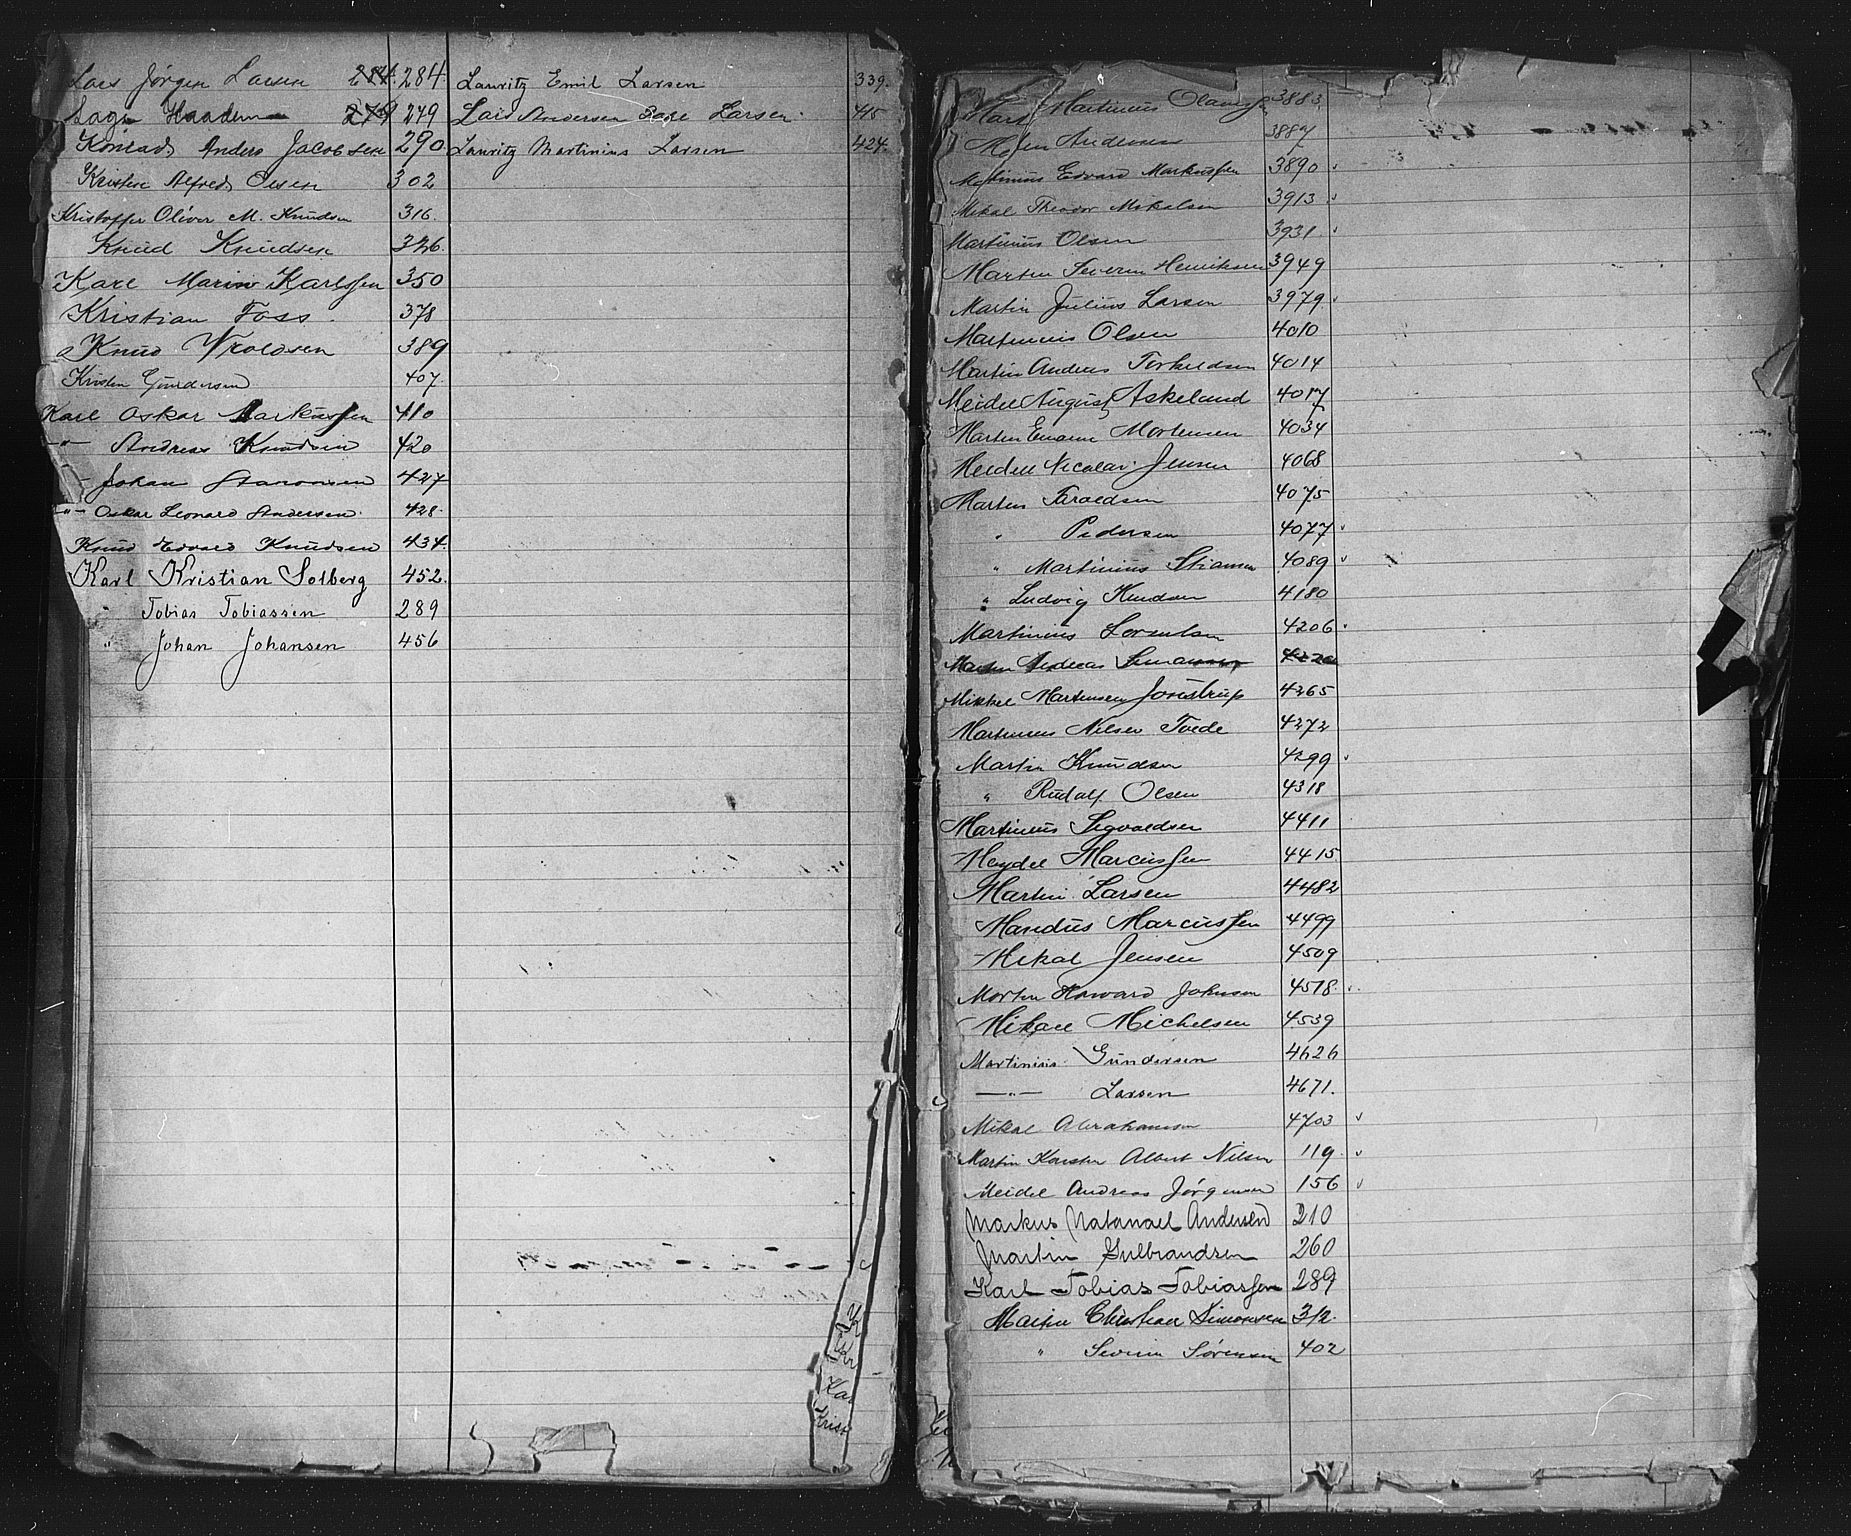 Lars Jørgen Larsen 284. 284.
Lage Haadem 279 279
Konrad Anders Jacobsen 290
Kristen Alfred Olsen 302
Kristoffer Oliver M. Knudsen 316.
Knud Knudsen 326
Karl Marin Karlssen 350
Kristian Foss. 378
Knud Wroldsen 389
Kristen Gundersen 407.
Karl Oskar Markussen 410
-"- Andreas Knudsen 420
- Johan Aanonsen 427
-"- Oskar Leonard Andersen. 428.
Knud Edvard Knudsen 434.
Karl Kristian Solberg 452.
" Tobias Tobiassen 289
" Johan Johansen 456
Lauritz Emil Larsen 339.
Lars Andersen Larsen. 415
Lauritz Martinius Larsen 424.
Martinius 3883
Andersen 3887
Martinius Edvard Markussen 3890
Mikal Theodor Mikalsen 3913
Martinius Olsen 3931.
Martin Severin Henriksen 3949
Martin Julius Larsen 3979.
Martinius Olsen 4010
Martin Andreas Terkeldsen 4014
Meidel August Askeland 4017
Martin Emanu Mortensen 4034
Meidell Nicolai Jensen 4068
Marten Taraldsen 4075
" Pedersen 4077
" Martinius Stiansen 4089
" Ludvig Knudsen 4180
Martinius Lorentsen 4206
Martin Andreas
Mikkel Martensen Jonstrup 4265
Martinius Nilsen Tvede 4272
Martin Knudsen 4299
" Rudolf Olsen 4318
Martinius Sigvaldsen 4411
Heydel Marcussen 4415
Martin Larsen 4482
Mandius Marcussen 4499
Mikal Jensen 4509
Morten Howard Johnson 4518.
Mikael Michelsen 4539
Martinius Gundersen 4626
—"— Larsen 4671.
Mikal Abrahamsen 4703
Martin Karsten Albert Nilsen 119
Meidel Andreas Jørgensen 156
Markus Natanael Andersen 210
Martin Gulbrandsen 260
Karl Tobias Tobiassen 289
Martin Christian Simonsen 312.
" Severin Sørensen 402
Kris